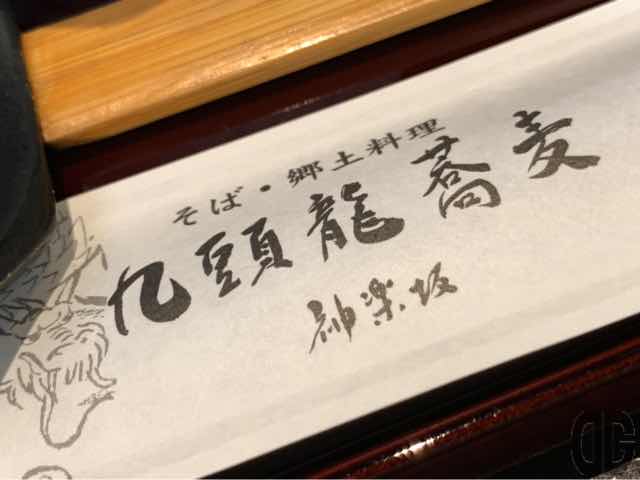 そば・郷土料理
九頭龍蕎麦
神楽坂